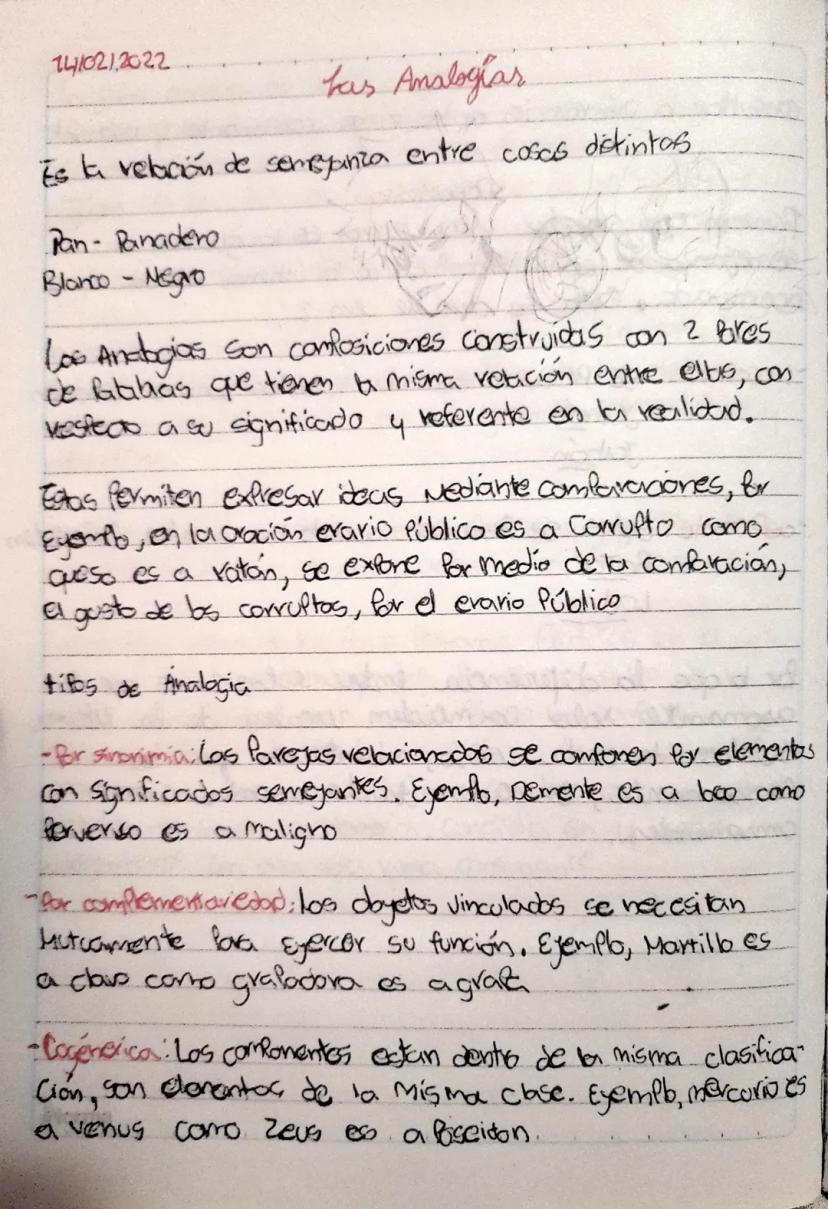 14/02/2022
Las Analogías
Es la relación de semejanza entre cosas distintas
Pan - Panadero
Blanco - Negro
Las Analogías son composiciones construidas con 2 Pares
de Palabras que tienen la misma relación entre ellas, con
respecto a su significado y referente en la realidad.
Estas Permiten expresar ideas Mediante comparaciones, Por
Ejemplo, en la oración erario Público es a Corrupto como
queso es a ratón, se expone Por medio de la comparación,
el gusto de los corruptos, Por el erario Público
tipos de Analogía
-Por sinonimia: Las Parejas relacionadas se componen por elementos
con significados semejantes. Ejemplo, Demente es a loco como
Perverso es a maligno
-Por complementariedad: los objetos vinculados se necesitan
Mutuamente Para ejercer su función. Ejemplo, Martillo es
a clavo como grapadora es a grapa
-Cogénerica: Los componentes estan dentro de la misma clasifica-
ción, son elementos de la Misma clase. Ejemplo, mercurio es
a venus como Zeus es a Poseidon.